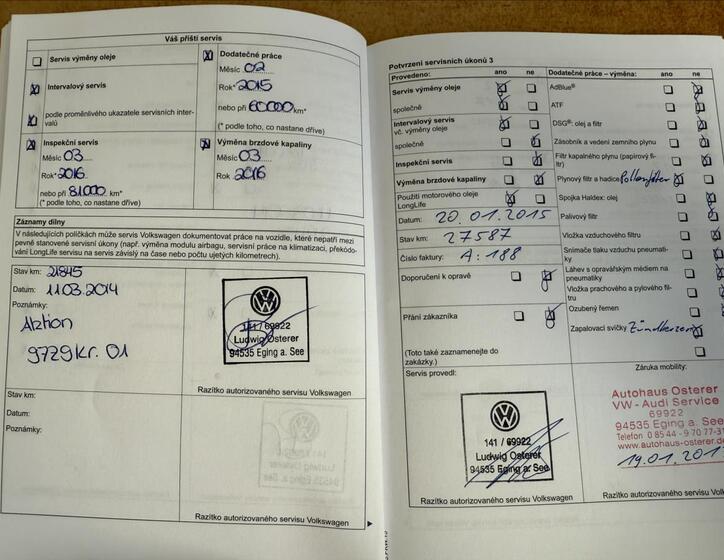 Váš příští servis
Servis výměny oleje
Intervalový servis
podle proměnlivého ukazatele servisních inter-
valů
Dodatečné práce
Měsíc 02
Rok* 2015
nebo při 60000 km*
(* podle toho, co nastane dříve)
Inspekční servis
Měsíc 03
Rok* 2016
nebo při 81.000 km*
(* podle toho, co nastane dříve)
Výměna brzdové kapaliny
Měsíc 03
Rok 2016
Záznamy dílny
V následujících políčkách může servis Volkswagen dokumentovat práce na vozidle, které nepatří mezi
pevně stanovené servisní úkony (např. výměna modulu airbagu, servisní práce na klimatizaci, překódo-
vání LongLife servisu na servis závislý na čase nebo počtu ujetých kilometrech).
Stav km: 21845
Datum: 11.03.2014
Poznámky:
Aktion
9729 Kr. 01
141 / 69922
Ludwig Osterer
94535 Eging a. See
Razítko autorizovaného servisu Volkswagen
Stav km:
Datum:
Poznámky:
Razítko autorizovaného servisu Volkswagen
Potvrzení servisních úkonů 3
Provedeno: ano ne
Servis výměny oleje
společně
Intervalový servis
vč. výměny oleje
společně
Inspekční servis
Výměna brzdové kapaliny
Použití motorového oleje
LongLife
Datum: 20.01.2015
Stav km: 27587
Číslo faktury: A: 188
Doporučení k opravě
Přání zákazníka
(Toto také zaznamenejte do
zakázky.)
Servis provedl:
141 / 69922
Ludwig Osterer
94535 Eging a. See
Razítko autorizovaného servisu Volkswagen
Dodatečné práce – výměna: ano ne
AdBlue®
ATF
DSG®: olej a filtr
Zásobník a vedení zemního plynu
Filtr kapalného plynu (papírový fil-
tr)
Plynový filtr a hadice Pollenfilter
Spojka Haldex: olej
Palivový filtr
Vložka vzduchového filtru
Snímače tlaku vzduchu pneumati-
ky
Láhev s opravářským médiem na
pneumatiky
Vložka prachového a pylového fil-
tru
Ozubený řemen
Zapalovací svíčky Zündkerzen
Záruka mobility:
Autohaus Osterer
VW - Audi Service
69922
94535 Eging a. See
Telefon 0 85 44 - 9 70 77-3
www.autohaus-osterer.de
19.01.201
Razítko autorizovaného servisu Vo